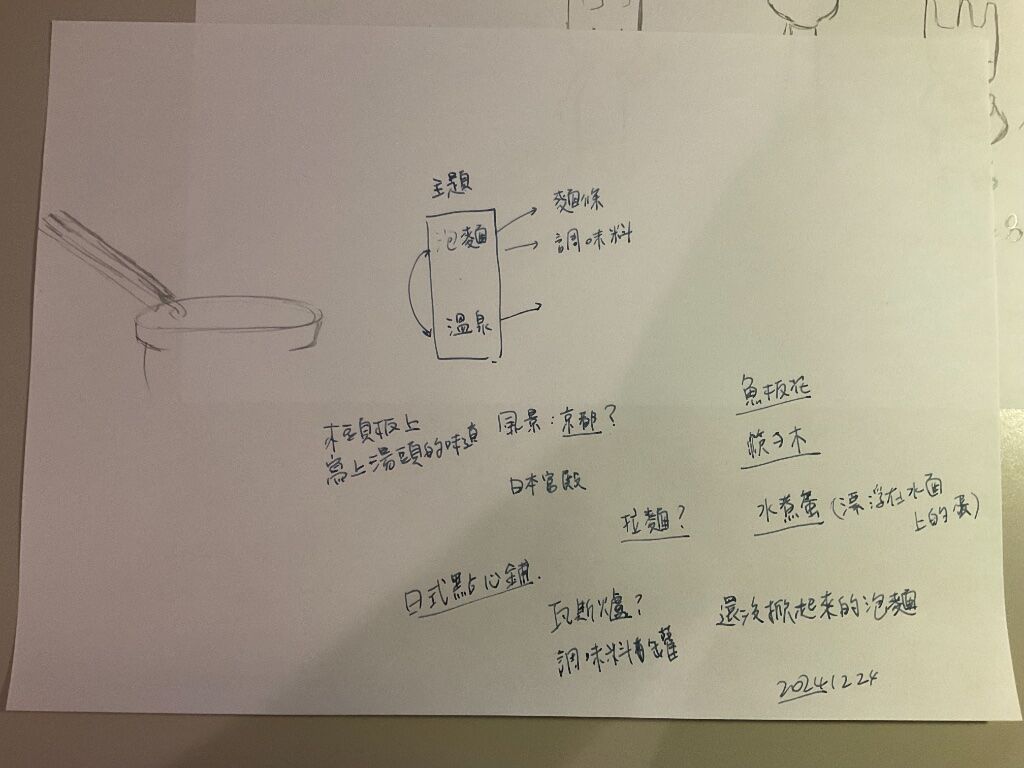 主題
泡麵
麵條
調味料
溫泉
木頭板上
寫上湯頭的味道
風景：京都？
日本宮殿
拉麵？
魚板花
筷子木
水煮蛋（漂浮在水面
上的蛋）
日式點心鋪.
瓦斯爐？
調味料罐
還沒掀起來的泡麵
20241224